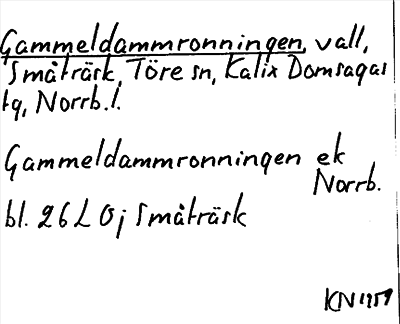 Gammeldammronningen, vall,
Småträsk, Töre sn, Kalix Domsagas
tg, Norrb.l.
Gammeldammronningen ek
Norrb.
bl. 26 L 0j Småträsk
KN 1959